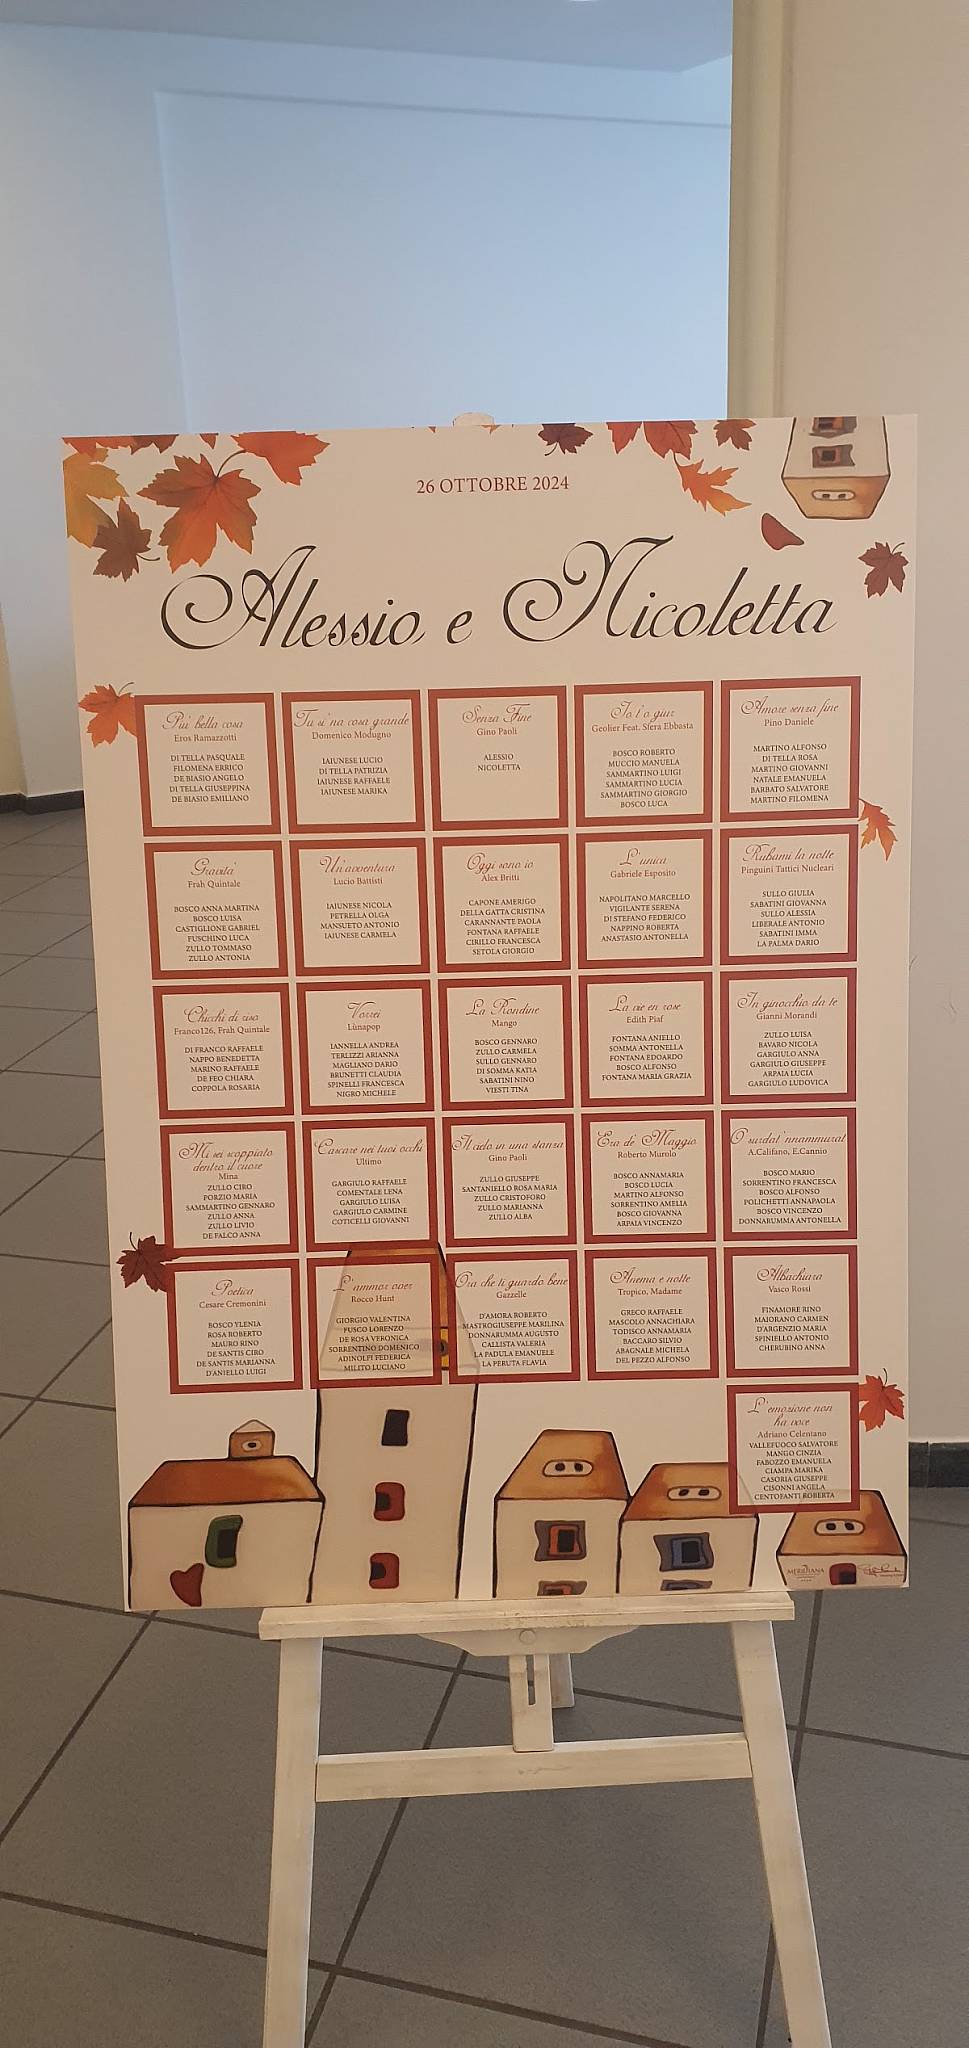 26 OTTOBRE 2024
Alessio e Nicoletta
Più bella cosa
Eros Ramazzotti
DI TELLA PASQUALE
FILOMENA ERRICO
DE BIASIO ANGELO
DI TELLA GIUSEPPINA
DE BIASIO EMILIANO
Tu si 'na cosa grande
Domenico Modugno
IAIUNESE LUCIO
DI TELLA PATRIZIA
IAIUNESE RAFFAELE
IAIUNESE MARIKA
Senza Fine
Gino Paoli
ALESSIO
NICOLETTA
Io t'o giur
Geolier Feat. Sfera Ebbasta
BOSCO ROBERTO
MUCCIO MANUELA
SAMMARTINO LUIGI
SAMMARTINO LUCIA
SAMMARTINO GIORGIO
BOSCO LUCA
Amore senza fine
Pino Daniele
MARTINO ALFONSO
DI TELLA ROSA
MARTINO GIOVANNI
NATALE EMANUELA
BARBATO SALVATORE
MARTINO FILOMENA
Gravità
Frah Quintale
BOSCO ANNA MARTINA
BOSCO LUISA
CASTIGLIONE GABRIEL
FUSCHINO LUCA
ZULLO TOMMASO
ZULLO ANTONIA
Un'avventura
Lucio Battisti
IAIUNESE NICOLA
PETRELLA OLGA
MANSUETO ANTONIO
IAIUNESE CARMELA
Oggi sono io
Alex Britti
CAPONE AMERIGO
DELLA GATTA CRISTINA
CARANNANTE PAOLA
FONTANA RAFFAELE
CIRILLO FRANCESCA
SETOLA GIORGIO
L'unica
Gabriele Esposito
NAPOLITANO MARCELLO
VIGILANTE SERENA
DI STEFANO FEDERICO
NAPPINO ROBERTA
ANASTASIO ANTONELLA
Rubami la notte
Pinguini Tattici Nucleari
SULLO GIULIA
SABATINI GIOVANNA
SULLO ALESSIA
LIBERALE ANTONIO
SABATINI IMMA
LA PALMA DARIO
Chicchi di riso
Franco126, Frah Quintale
DI FRANCO RAFFAELE
NAPPO BENEDETTA
MARINO RAFFAELE
DE FEO CHIARA
COPPOLA ROSARIA
Vorrei
Lùnapop
IANNELLA ANDREA
TERLIZZI ARIANNA
MAGLIANO DARIO
BRUNETTI CLAUDIA
SPINELLI FRANCESCA
NIGRO MICHELE
La Rondine
Mango
BOSCO GENNARO
ZULLO CARMELA
SULLO GENNARO
DI SOMMA KATIA
SABATINI NINO
VIESTI TINA
La vie en rose
Edith Piaf
FONTANA ANIELLO
SOMMA ANTONELLA
FONTANA EDOARDO
BOSCO ALFONSO
FONTANA MARIA GRAZIA
In ginocchio da te
Gianni Morandi
ZULLO LUISA
BAVARO NICOLA
GARGIULO ANNA
GARGIULO GIUSEPPE
ARPAIA LUCIA
GARGIULO LUDOVICA
Mi sei scoppiato
dentro il cuore
Mina
ZULLO CIRO
PORZIO MARIA
SAMMARTINO GENNARO
ZULLO ANNA
ZULLO LIVIO
DE FALCO ANNA
Cascare nei tuoi occhi
Ultimo
GARGIULO RAFFAELE
COMENTALE LENA
GARGIULO LUISA
GARGIULO CARMINE
COTICELLI GIOVANNI
Il cielo in una stanza
Gino Paoli
ZULLO GIUSEPPE
SANTANIELLO ROSA MARIA
ZULLO CRISTOFORO
ZULLO MARIANNA
ZULLO ALBA
Era de' Maggio
Roberto Murolo
BOSCO ANNAMARIA
BOSCO LUCIA
MARTINO ALFONSO
SORRENTINO AMELIA
BOSCO GIOVANNA
ARPAIA VINCENZO
O surdat' nnammurat
A.Califano, E.Cannio
BOSCO MARIO
SORRENTINO FRANCESCA
BOSCO ALFONSO
POLICHETTI ANNAPAOLA
BOSCO VINCENZO
DONNARUMMA ANTONELLA
Poetica
Cesare Cremonini
BOSCO YLENIA
ROSA ROBERTO
MAURO RINO
DE SANTIS CIRO
DE SANTIS MARIANNA
D'ANIELLO LUIGI
L'ammor over
Rocco Hunt
GIORGIO VALENTINA
FUSCO LORENZO
DE ROSA VERONICA
SORRENTINO DOMENICO
ADINOLFI FEDERICA
MILITO LUCIANO
Ora che ti guardo bene
Gazzelle
D'AMORA ROBERTO
MASTROGIUSEPPE MARILINA
DONNARUMMA AUGUSTO
CALLISTA VALERIA
LA PADULA EMANUELE
LA PERUTA FLAVIA
Anema e notte
Tropico, Madame
GRECO RAFFAELE
MASCOLO ANNACHIARA
TODISCO ANNAMARIA
BACCARO SILVIO
ABAGNALE MICHELA
DEL PEZZO ALFONSO
Albachiara
Vasco Rossi
FINAMORE RINO
MAIORANO CARMEN
D'ARGENZIO MARIA
SPINIELLO ANTONIO
CHERUBINO ANNA
L'emozione non
ha voce
Adriano Celentano
VALLEFUOCO SALVATORE
MANGO CINZIA
FABOZZO EMANUELA
CIAMPA MARIKA
CASORIA GIUSEPPE
CISONNI ANGELA
CENTOFANTI ROBERTA
MERIDIANA